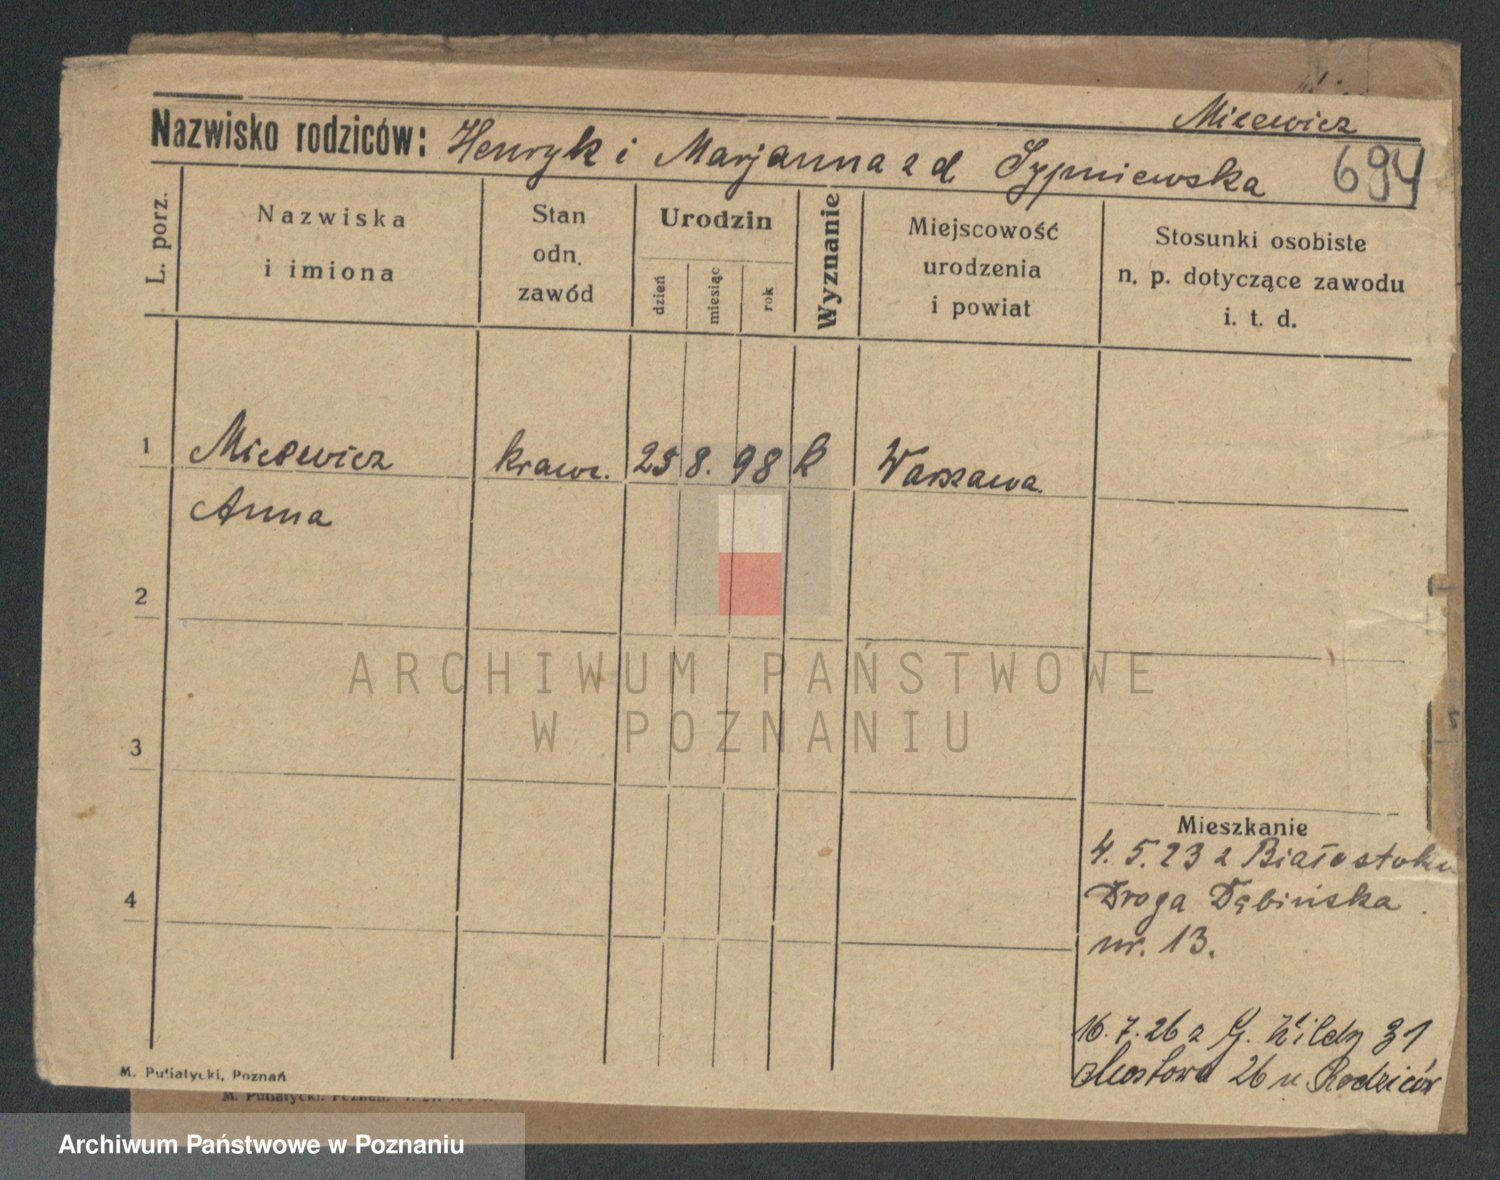 Micewicz
Nazwisko rodziców: Henryk i Marjanna z d. Sypniewska
694
L. porz.
Nazwiska
i imiona
Stan
odn.
zawód
Urodzin
dzień
miesiąc
rok
Wyznanie
Miejscowość
urodzenia
i powiat
Stosunki osobiste
n. p. dotyczące zawodu
i. t. d.
1
Micewicz krawc. 25 8. 98 k Warszawa
Anna
2
3
4
Mieszkanie
4. 5. 23 z Białostoku
Droga Dębińska
nr. 13.
16. 7. 26 z G. Wildy 31
Mostowa 26 u Rodziców
M. Putiatycki, Poznań
M. Putiatycki, Poznań.
ARCHIWUM PAŃSTWOWE
W POZNANIU
Archiwum Państwowe w Poznaniu